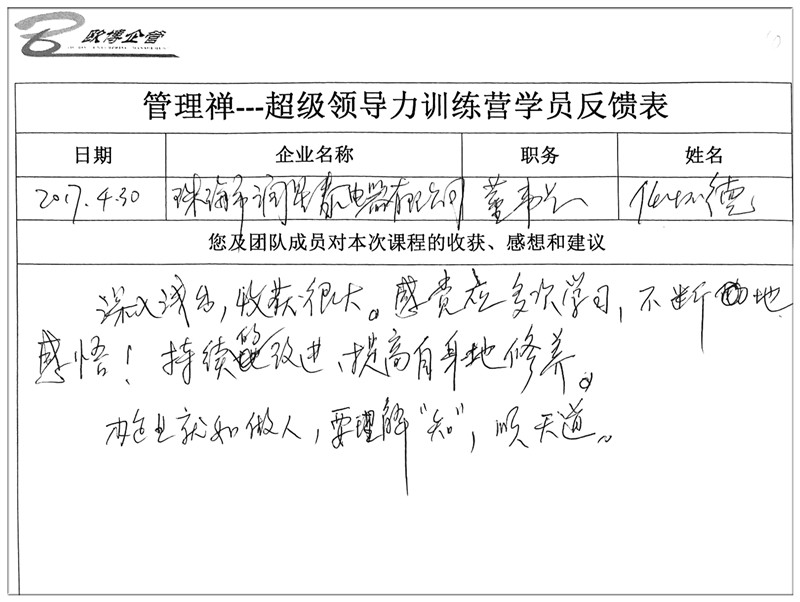 欧博企管
管理禅---超级领导力训练营学员反馈表
日期 企业名称 职务 姓名
2017.4.30 珠海市润星泰电器有限公司 董事长 德
您及团队成员对本次课程的收获、感想和建议
深入浅出，收获很大。感觉应多次学习，不断地
感悟！持续改进、提高自身地修养。
办企业就如做人，要理解“知”，顺天道。